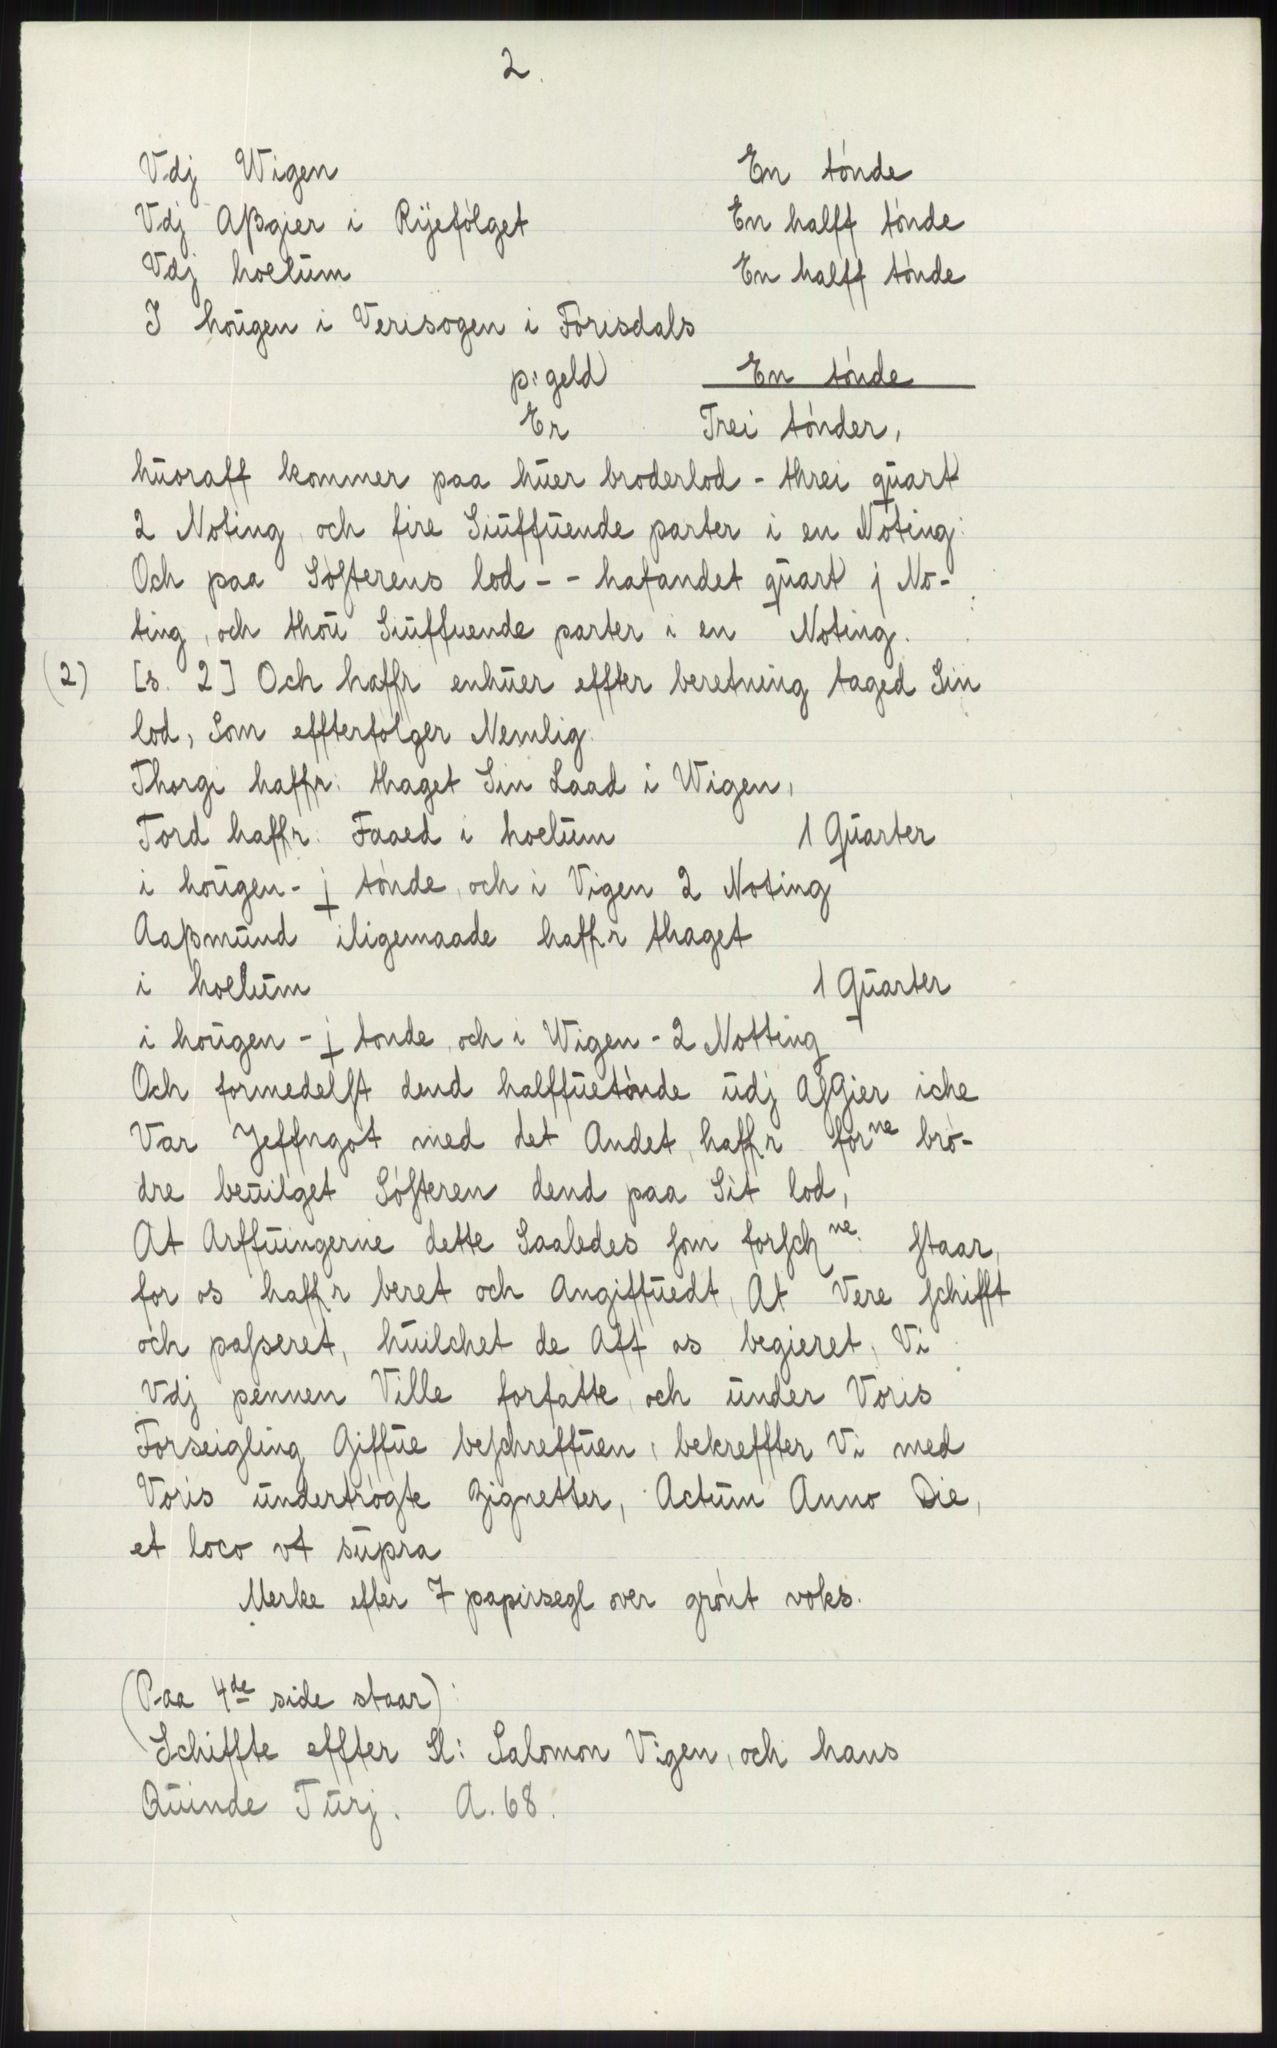 2.
Vdj Wigen En tónde
Vdj Aßgier i Rÿefólget En halff tónde
Vdj hoelūm En halff tónde
I hoūgen i Verisogen i Fórisdals
p: geld En tónde
Er Trei tónder,
hūoraff kommer paa hūer broderlod - threi qūart
2 Noting, och fire Siūffūende parter i en Nóting:
Och paa Sósterens lod - - hafandet qūart j No-
ting, och thoū Siūffuende parter i en Noting.
(2) [s. 2] Och haffr enhūer effter beretning taged Sin
lod, Som effterfolger Nemlig.
Thorgi haffr: thaget Sin Laad i Wigen,
Tord haffr: Faaed i hoelūm 1 Qūarter
i hoūgen - j tónde, och i Vigen 2 Noting
Aaßmūnd iligemaade haffr thaget
i hoelūm 1 Qūarter
i hoūgen - j tonde, och i Wigen - 2 Notting
Och formedelst dend halffūetónde ūdj Assgier iche
Var Jeffngot med det Andet, haffr forne bró-
dre beūilget Sósteren dend paa Sit lod,
At Arffūingerne dette Saaledes som forschne: staar,
for os haffr beret och Angiffūedt, At Vere schifft
och passeret, hūilchet de Aff os begieret, Vi
Vdj pennen Ville forfatte, och ūnder Voris
Forseigling Giffūe beschreffūen, bekreffter Vi med
Voris ūndertrógte Zignetter, Actūm Anno Die,
et loco vt sūpra
Merke efter 7 papirsegl over grónt voks.
(Paa 4de side staar):
Schiffte effter Sl: Salomon Vigen, och hans
Qūinde Tūrj. A. 68.